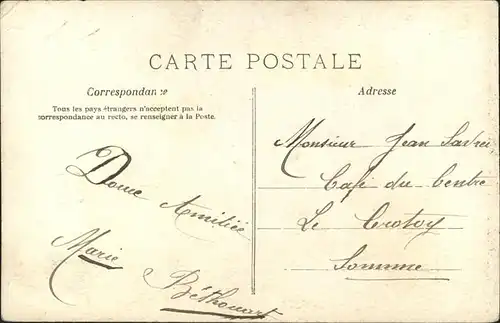 CARTE POSTALE
Correspondance
Tous les pays étrangers n'acceptent pas la
correspondance au recto, se renseigner à la Poste.
Adresse
Monsieur Jean
Café du Centre
Le Crotoy
Somme
Douce Amitiée
Marie
Béthouart